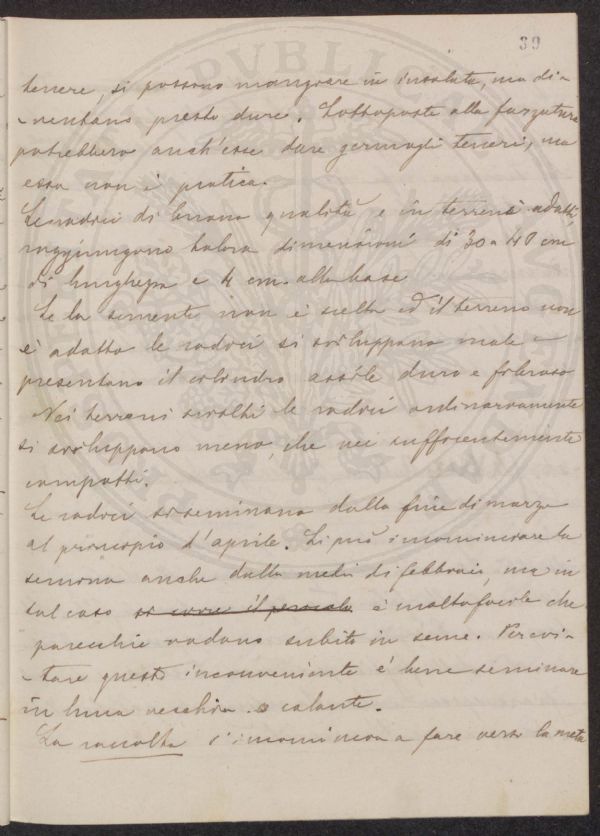 39
tenere, si possono mangiare in insalata, ma di-
-ventano presto dure. Sottoposte alla forzatura
potrebbero anch'esse dare germogli teneri, ma
essa non è pratica.
Le radici di buona qualità e in terreni adatti,
raggiungono talora dimensioni di 30 a 40 cm
di lunghezza e 4 cm. alla base
Se la semente non è scelta ed il terreno non
è adatto le radici si sviluppano male e
presentano il cilindro assile duro e fibroso
Nei terreni sciolti le radici ordinariamente
si sviluppano meno, che nei sufficientemente
compatti.
Le radici si seminano dalla fine di marzo
al principio d'aprile. Si può incominciare la
semina anche dalla metà di febbraio, ma in
tal caso si corre il pericolo è molto facile che
parecchie vadano subito in seme. Per evi-
-tare questo inconveniente è bene seminare
in luna vecchia o calante.
La raccolta s'incomincia a fare verso la metà